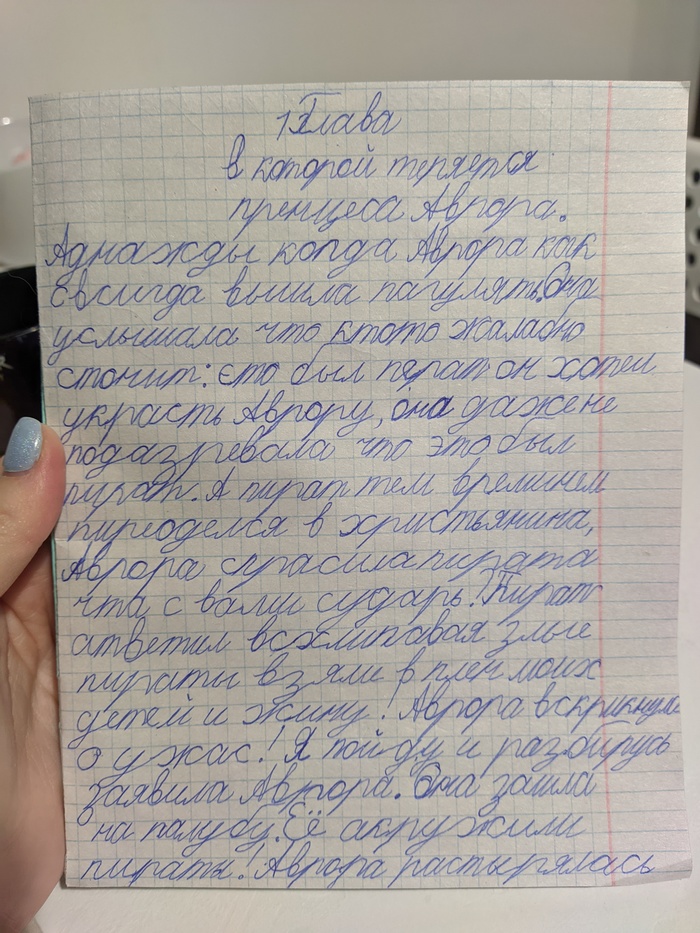 1 Глава
в которой теряется
пренцеса Аврора.
Аднажды когда Аврора как
Евсигда вышла пагулять. Она
услышала что ктото жалабно
стонит: ето был пират он хотел
украсть Аврору, она даже не
подазревала что это был
пират. А пират тем времинем
пиреоделся в христьянина,
Аврора спрасила пирата
что с вами сударь! Пират
атветил всхлипавая злые
пираты взяли в плен моих
детей и жину! Аврора вскрикнула
о ужас! Я пойду и разбирусь
заявила Аврора. Она зашла
на палубу. Её акружили
пираты! Аврора растырялась